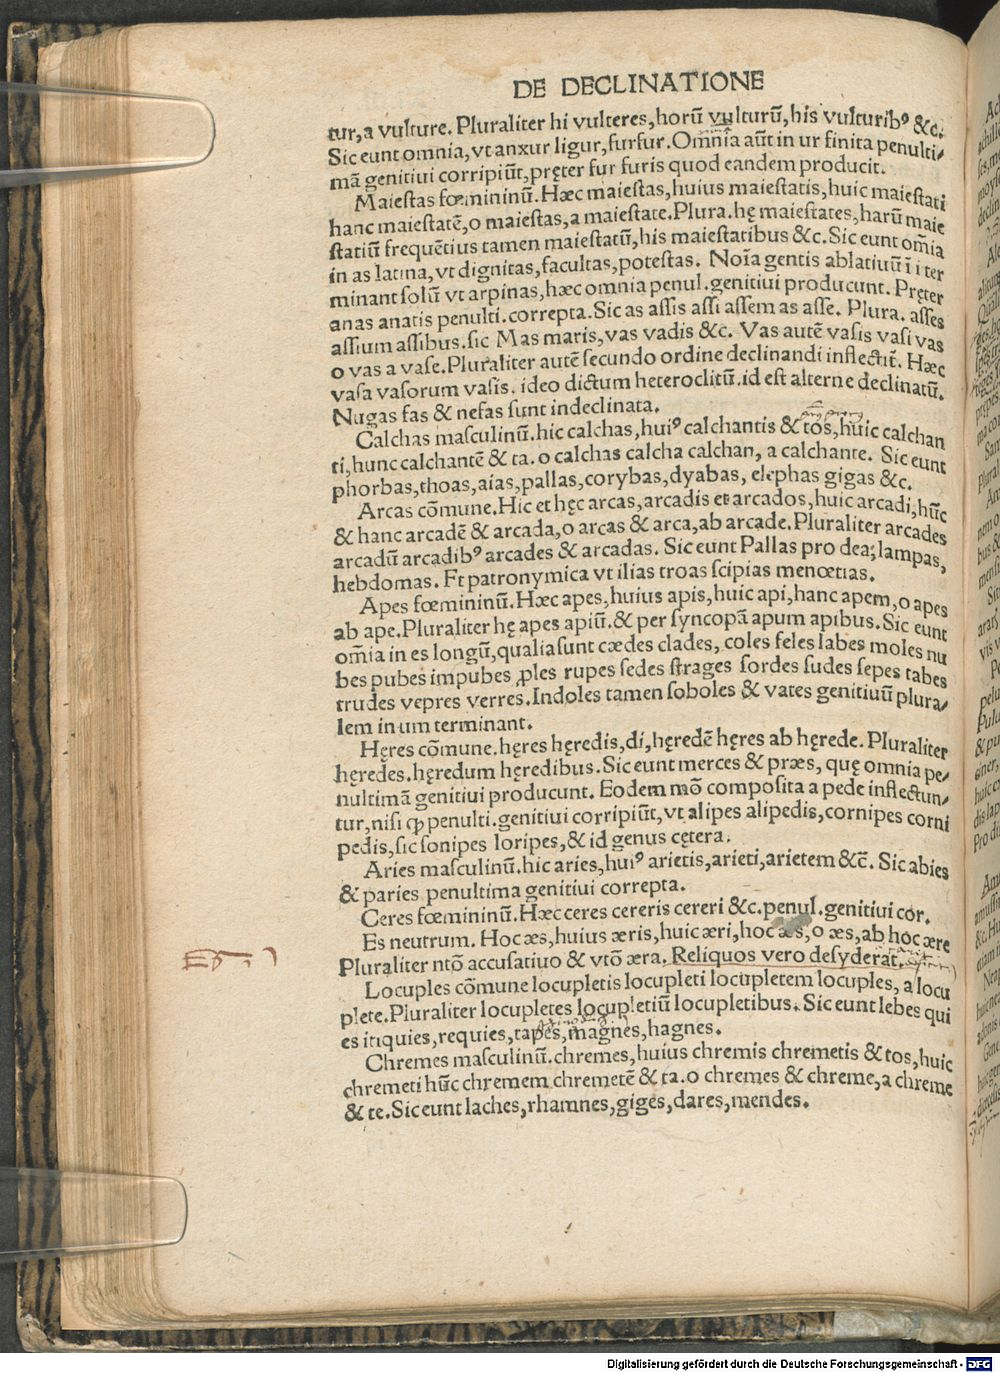 DE DECLINATIONE
tur,a vulture. Pluraliter hi vulteres,horū vulturū,his vulturibꝰ &c.
Sic eunt omnia,vt anxur ligur,furfur.Omnia aūt in ur finita penulti⸗
mā genitiui corripiūt,pręter fur furis quod eandem producit.
Maieſtas fœmininū. Hæc maieſtas,huius maieſtatis,huic maieſtati
hanc maieſtatē,o maieſtas,a maieſtate.Plura.hę maieſtates,harū maie
ſtatiū frequētius tamen maieſtatū,his maieſtatibus &c.Sic eunt om̄ia
in as latina,vt dignitas,facultas,poteſtas. Noīa gentis ablatiuū ī i ter
minant ſolū vt arpinas,hæc omnia penul.genitiui producunt. Pręter
anas anatis penulti.correpta.Sic as aſſis aſſi aſſem as aſſe. Plura. aſſes
aſſium aſſibus.ſic Mas maris,vas vadis &c. Vas autē vaſis vaſi vas
o vas a vaſe.Pluraliter autē ſecundo ordine declinandi inflectit̄. Hæc
vaſa vaſorum vaſis. ideo dictum heteroclitū.id eſt alterne declinatū.
Nugas fas & nefas ſunt indeclinata.
Calchas maſculinū.hic calchas,huiꝰ calchantis & tos,huic calchan
ti,hunc calchantē & ta.o calchas calcha calchan, a calchante. Sic eunt
phorbas,thoas,aias,pallas,corybas,dyabas, elephas gigas &c.
Arcas cōmune.Hic et hęc arcas,arcadis et arcados,huic arcadi,hūc
& hanc arcadē & arcada,o arcas & arca,ab arcade.Pluraliter arcades
arcadū arcadibꝰ arcades & arcadas. Sic eunt Pallas pro dea; lampas,
hebdomas. Et patronymica vt ilias troas ſcipias menœtias.
Apes fœmininū.Hæc apes,huius apis,huic api,hanc apem,o apes
ab ape.Pluraliter hę apes apiū.& per ſyncopā apum apibus.Sic eunt
om̄ia in es longū,qualia ſunt cædes clades, coles feles labes moles nu
bes pubes impubes ꝓles rupes ſedes ſtrages ſordes ſudes ſepes tabes
trudes vepres verres.Indoles tamen ſoboles & vates genitiuū plura⸗
lem in um terminant.
Hęres cōmune.hęres hęredis,di,hęredē hęres ab hęrede. Pluraliter
hęredes.hęredum hęredibus.Sic eunt merces & præs, quę omnia pe⸗
nultimā genitiui producunt. Eodem mō compoſita a pede inflectun⸗
tur,niſi ꝙ penulti.genitiui corripiūt,vt alipes alipedis,cornipes corni
pedis,ſic ſonipes loripes,& id genus cętera.
Aries maſculinū.hic aries,huiꝰ arietis,arieti,arietem &c̄. Sic abies
& paries penultima genitiui correpta.
Ceres fœmininū.Hæc ceres cereris cereri &c.penul.genitiui cor.
Es neutrum. Hoc æs,huius æris,huic æri,hoc æs,o æs,ab hoc ære
Pluraliter ntō accuſatiuo & vtō æra. Reliquos vero deſyderat.
Locuples cōmune locupletis locupleti locupletem locuples, a locu
plete.Pluraliter locupletes locupletiū locupletibus. Sic eunt lebes qui
es inquies,requies,tapes,magnes,hagnes.
Chremes maſculinū.chremes,huius chremis chremetis & tos,huic
chremeti hūc chremem chremetē & ta.o chremes & chreme,a chreme
& te.Sic eunt laches,rhamnes,giges,dares,mendes.
Digitalisierung gefördert durch die Deutsche Forschungsgemeinschaft - DFG